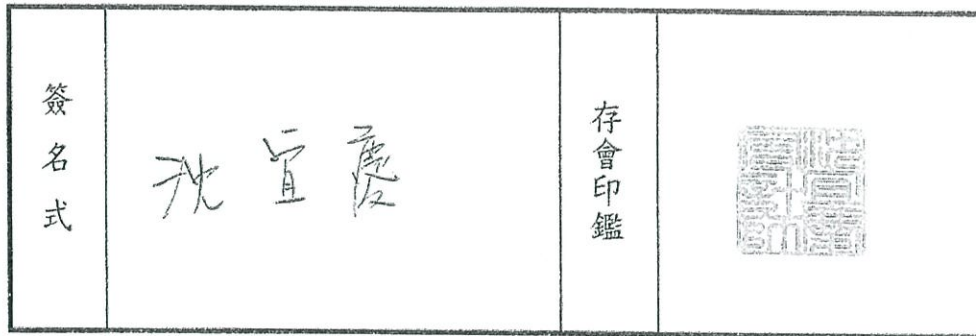 簽名式
沈宜慶
存會印鑑